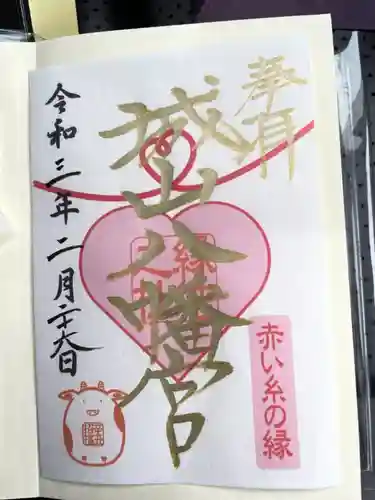 奉拝
城山八幡宮
縁
令和三年二月二十六日
赤い糸の縁